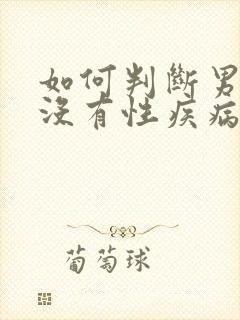 如何判斷男
沒有性疾病
葡萄球